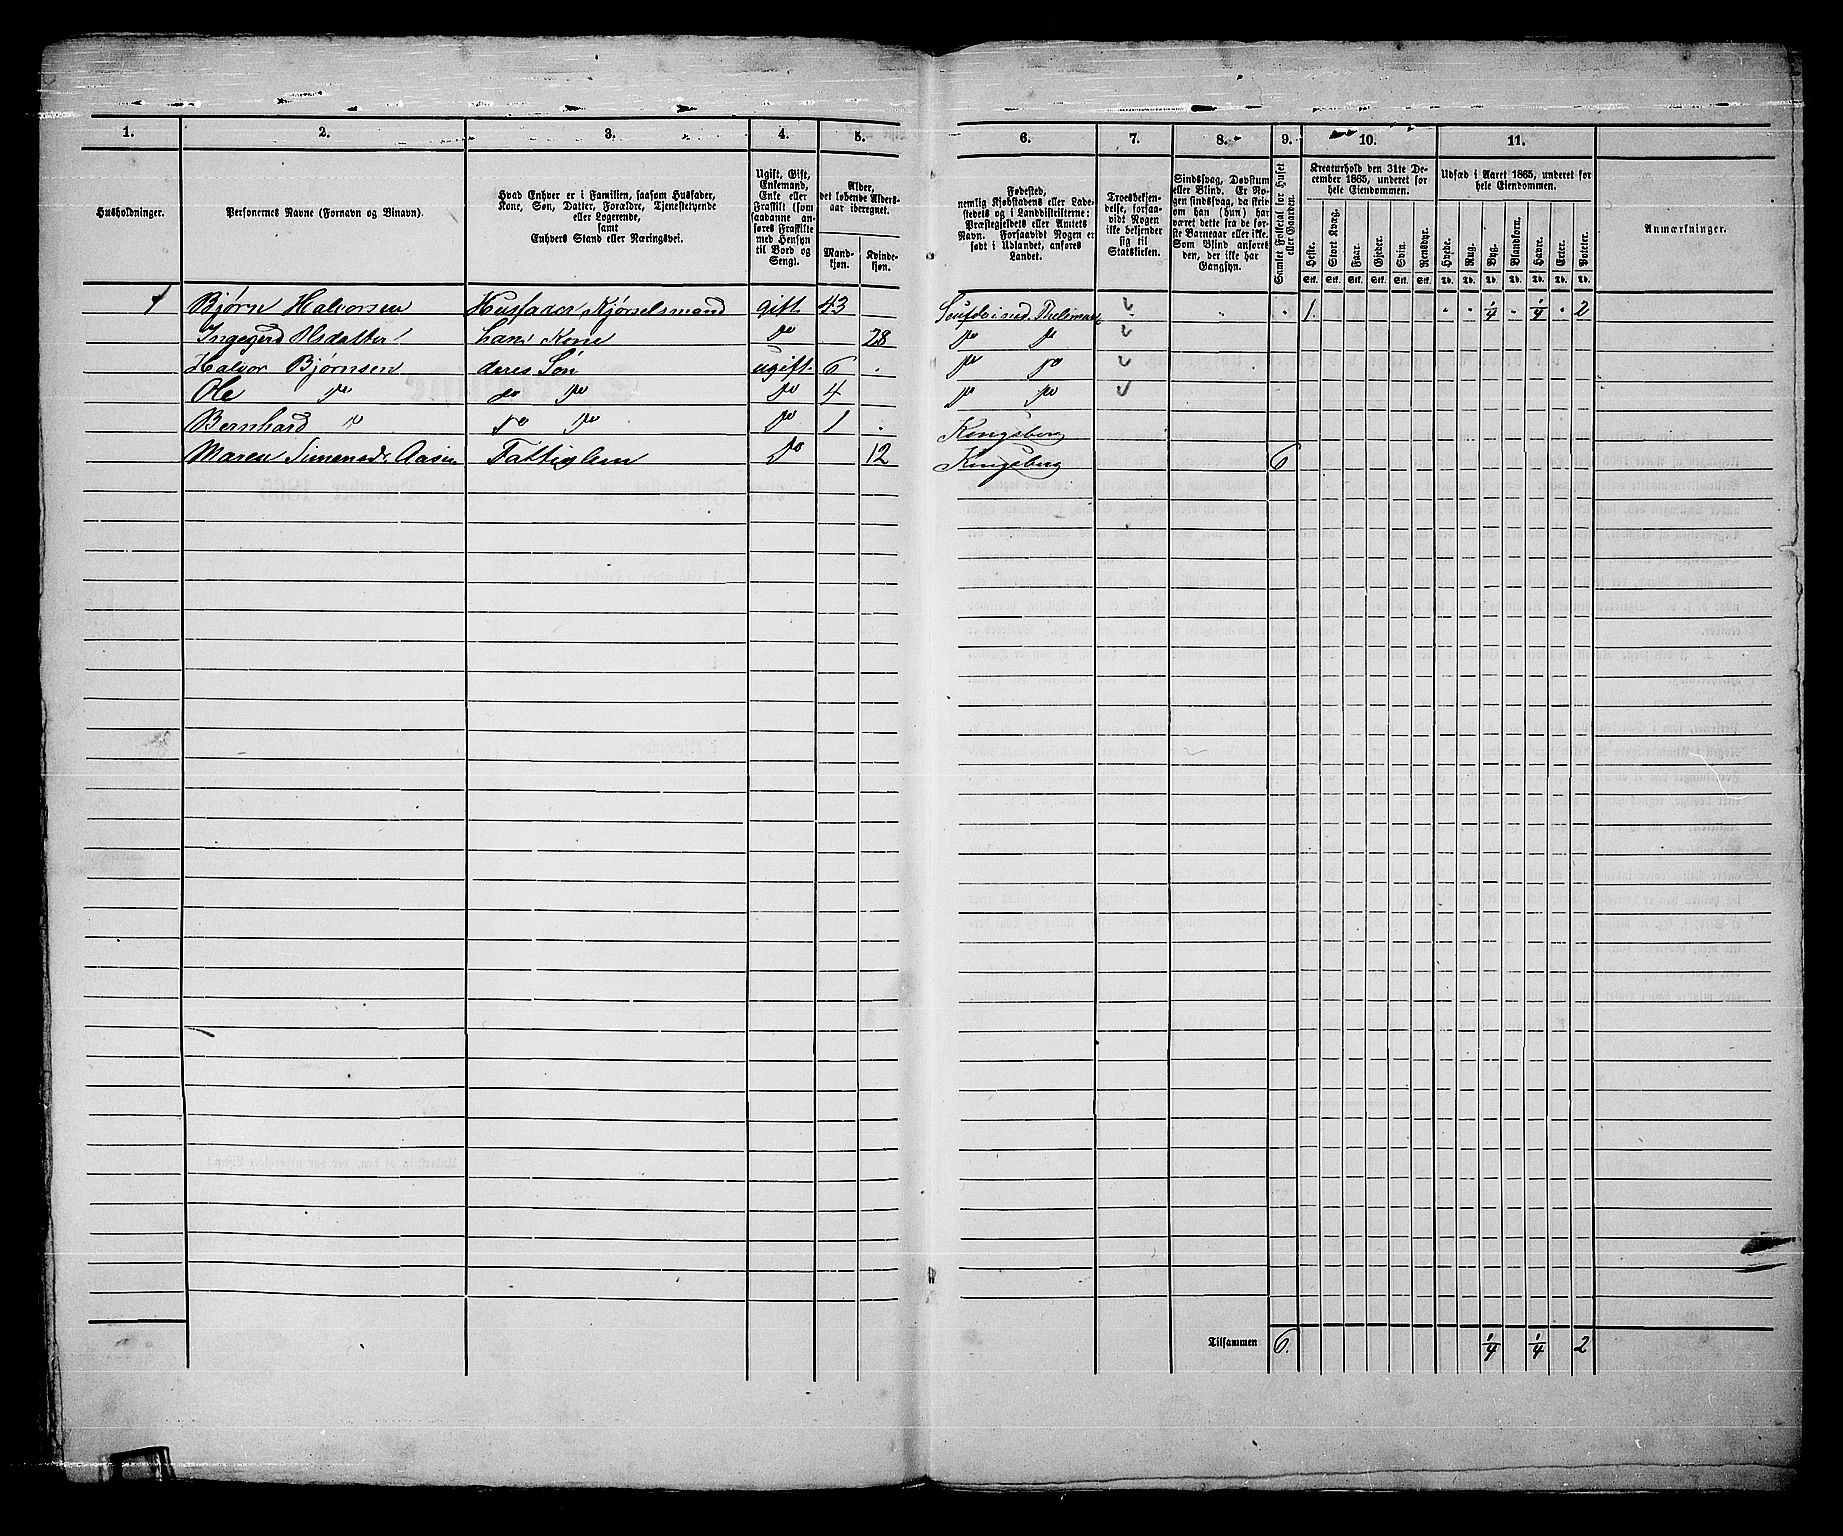 1. 2. 3. 4. 5. 6. 7. 8. 9. 10. 11.
Husholdninger.
Personernes Navne (Fornavn og Binavn).
Hvad Enhver er i Familien, saasom Husfader, Kone, Søn, Datter, Forældre, Tjenestetyende eller Logerende, samt Enhvers Stand eller Næringsvei.
Ugift, Gift, Enkemand, Enke eller Fraskilt (som saadanne anføres Fraskilte med Hensyn til Bord og Seng).
Alder, det løbende Aldersaar iberegnet.
Mandkjøn. Kvindekjøn.
Fødested, nemlig Kjøbstadens eller Ladestedets og i Landdistrikterne: Præstegjeldets eller Amtets Navn. Forsaavidt Nogen er født i Udlandet, anføres Landet.
Troesbekjendelse, forsaavidt Nogen ikke bekjender sig til Statskirken.
Sindssvag, Døvstum eller Blind. Er Nogen sindssvag, da skrives om han (hun) har været dette fra de første Barneaar eller ikke. Som Blind anføres den, der ikke har Gangsyn.
Samlet Folketal for Huset eller Gaarden.
Kreaturhold den 31te December 1865, underet for hele Eiendommen.
Heste. Stort Kvæg. Faar. Gjeder. Svin. Rensdyr.
Stk. Stk. Stk. Stk. Stk. Stk.
Udsæd i Aaret 1865, underet for hele Eiendommen.
Hvede. Rug. Byg. Blandkorn. Havre. Erter. Poteter.
Td. Td. Td. Td. Td. Td. Td.
Anmærkninger.
1 Bjørn Halvorsen Husfader Kjørselsmand gift 43 1. 1/4 1/4 2
Ingegerd Olsdatter hans Kone do 28 do do
Halvor Bjørnsen deres Søn ugift 6 do do
Ole do do do do 4 do do
Bernhard do do do do 1 Kongsberg
Maren Simensd. Fattiglem do 12 Kongsberg 6
Tilsammen 6. 1/4 1/4 2